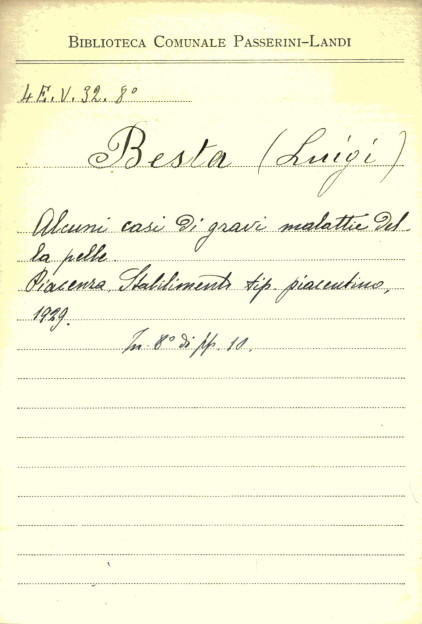 BIBLIOTECA COMUNALE PASSERINI-LANDI
4 E. V. 32. 8°
Besta (Luigi)
Alcuni casi di gravi malattie del-
la pelle.
Piacenza, Stabilimento tip. piacentino,
1929.
In-8° di pp. 10.